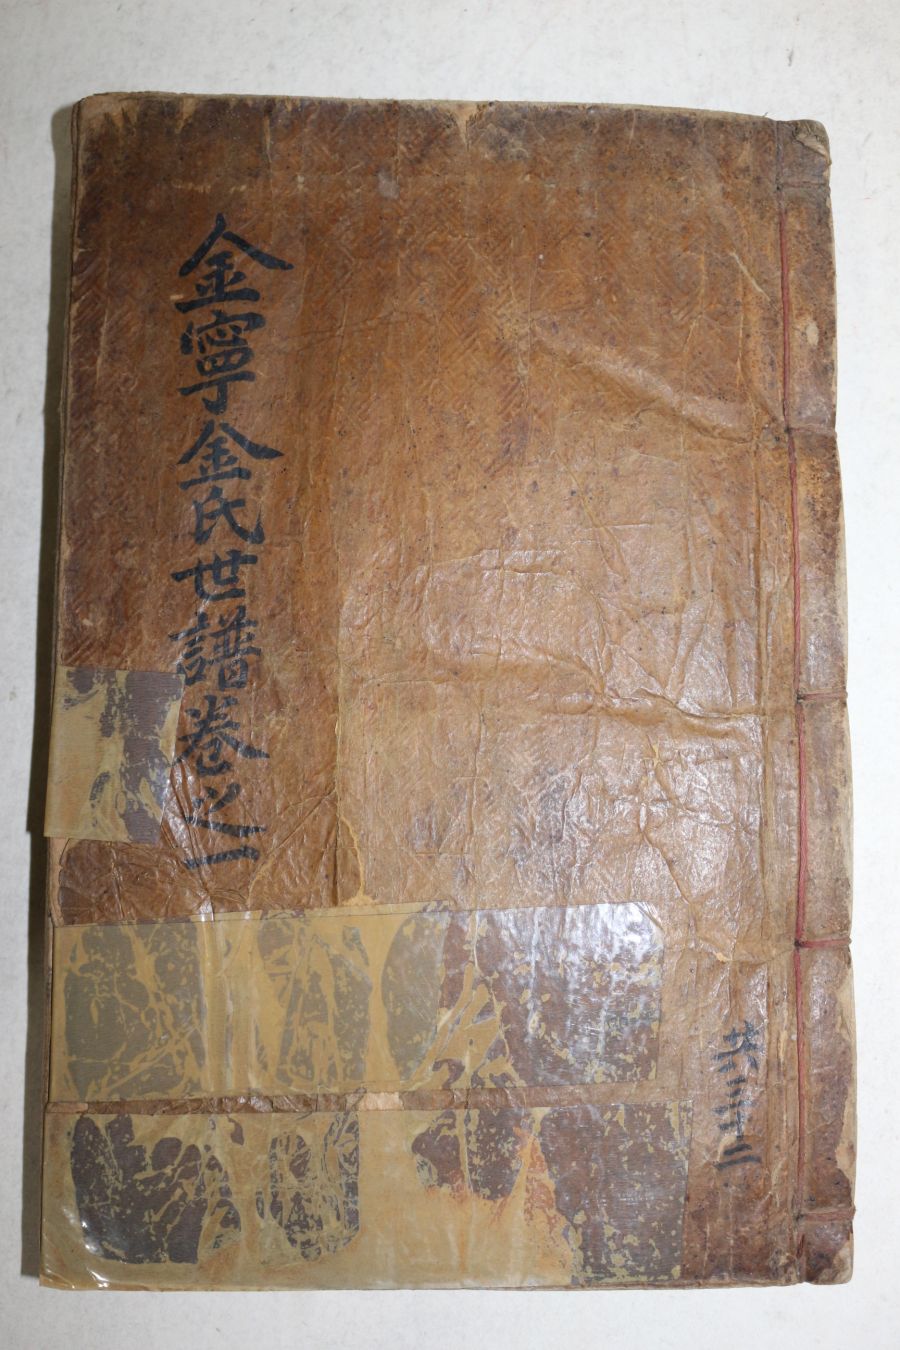 金寧金氏世譜卷之一
共三十二